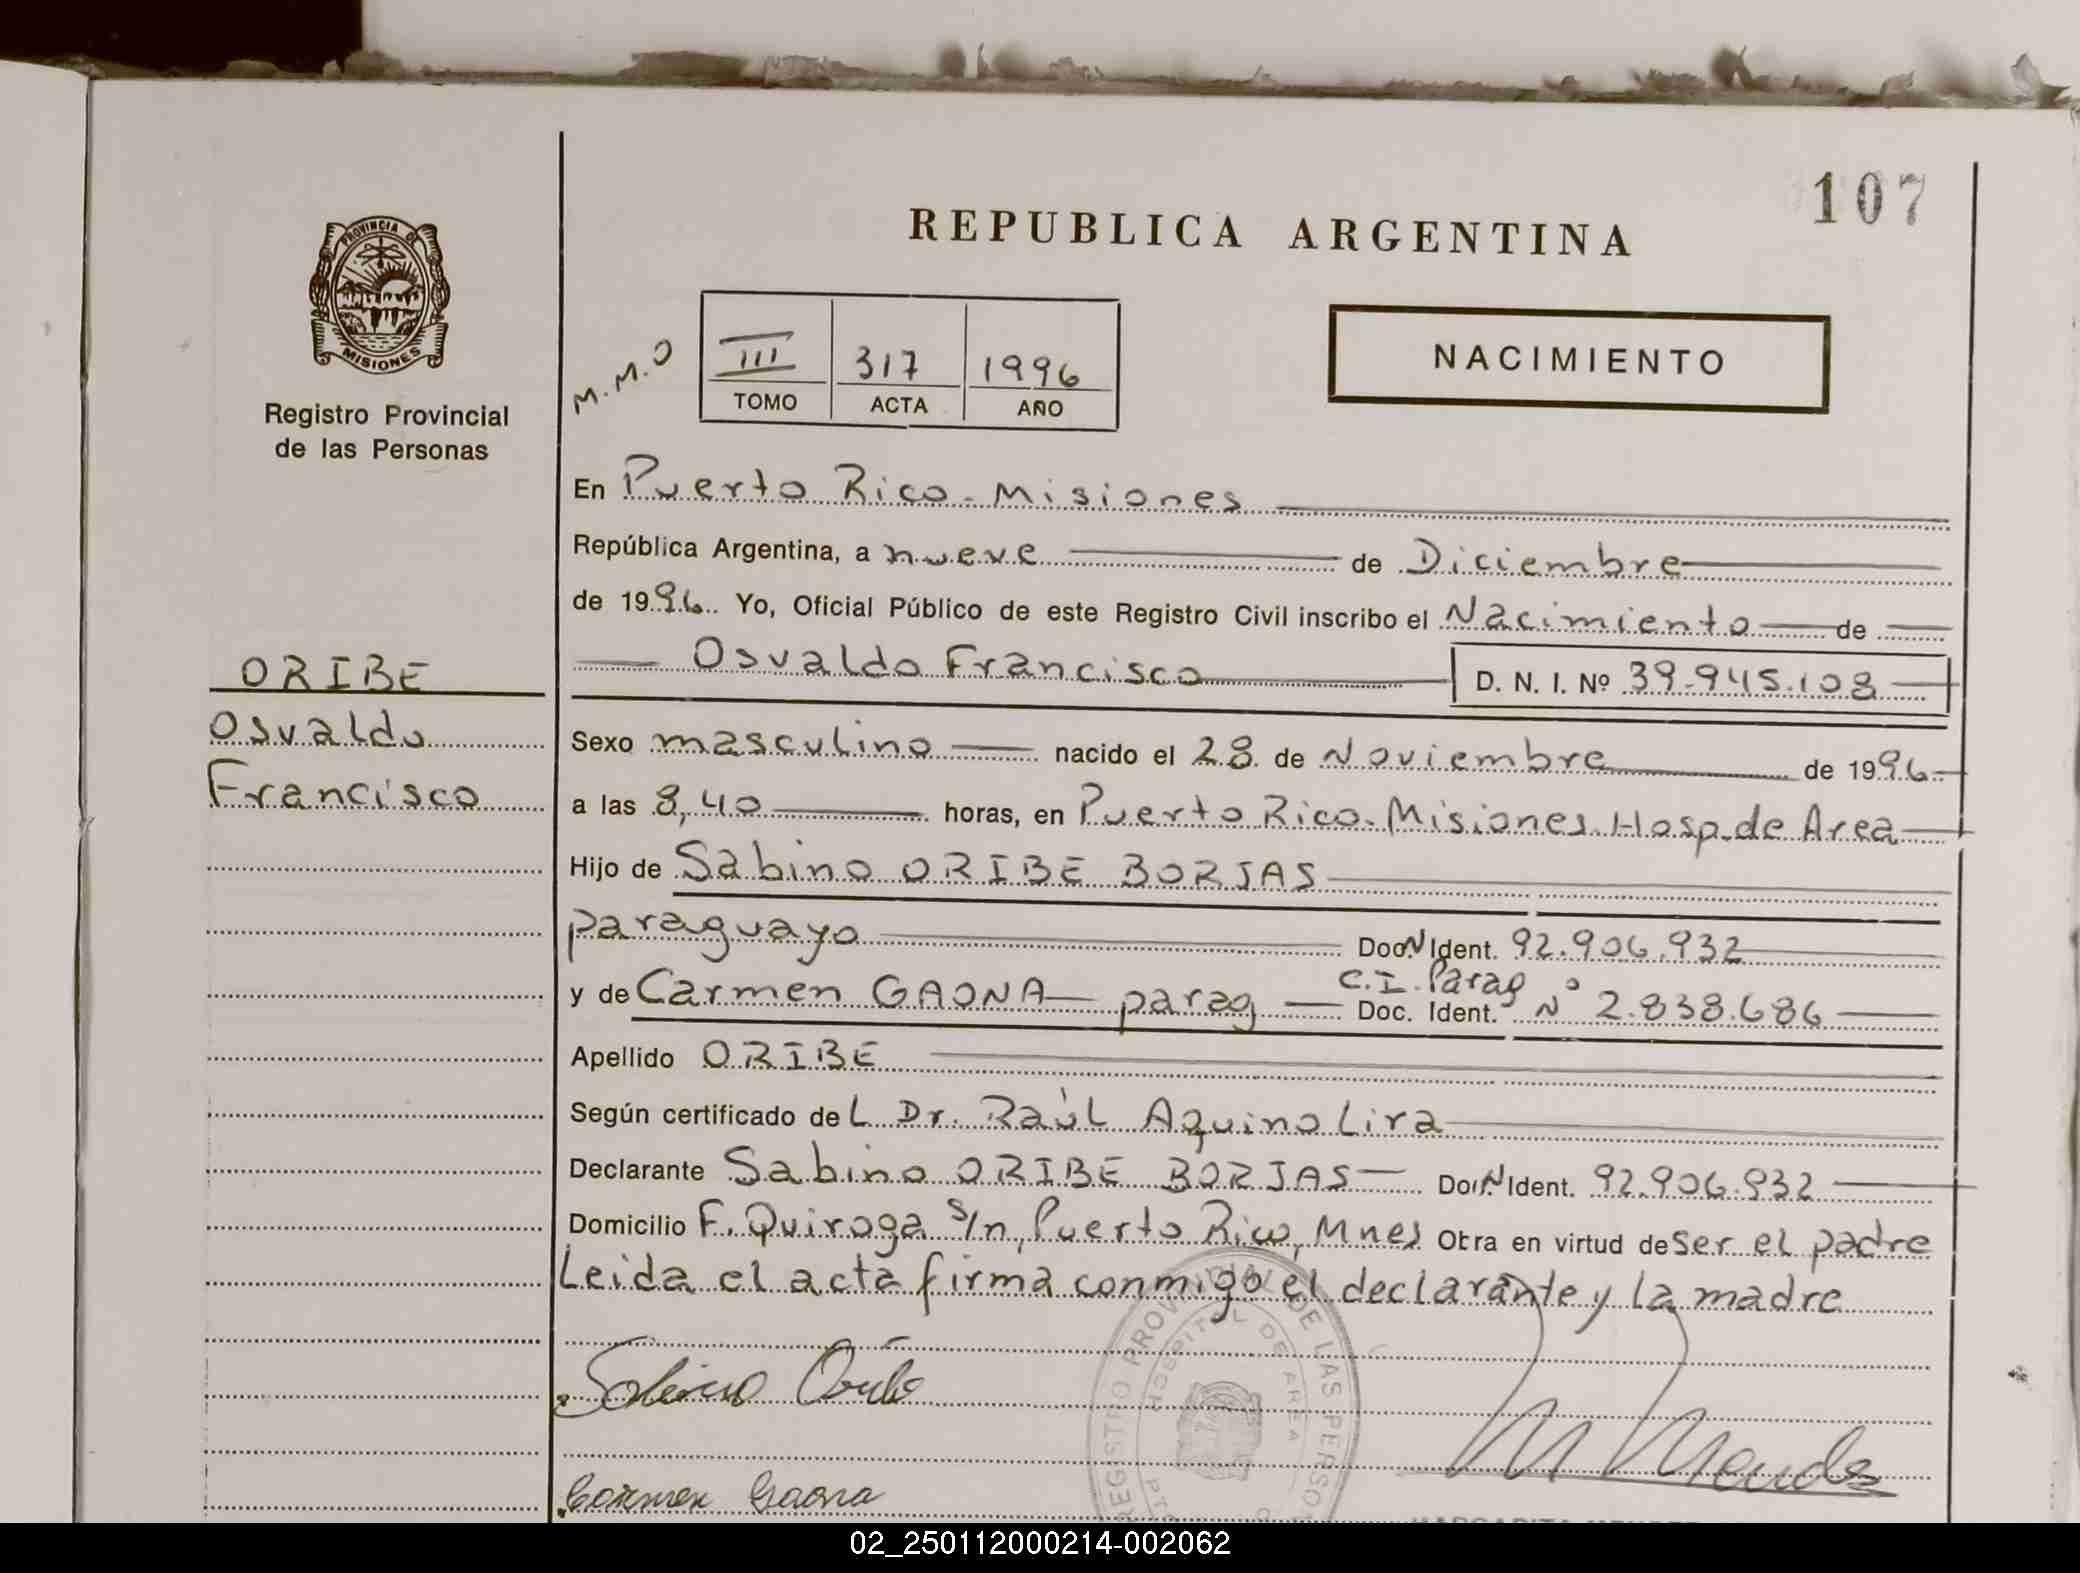 107
REPUBLICA ARGENTINA
PROVINCIA DE
MISIONES
Registro Provincial
de las Personas
M.M.O
III 317 1996
TOMO ACTA AÑO
NACIMIENTO
En Puerto Rico - Misiones
República Argentina, a nueve de Diciembre
de 1996. Yo, Oficial Público de este Registro Civil inscribo el Nacimiento de
Osvaldo Francisco D. N. I. Nº 39.945.108
ORIBE
Osvaldo
Francisco
Sexo masculino nacido el 28 de Noviembre de 1996
a las 8,40 horas, en Puerto Rico - Misiones. Hosp. de Area
Hijo de Sabino ORIBE BORJAS
paraguayo Doc. N Ident. 92.906.932
y de Carmen GAONA parag C.I. Parag Doc. Ident. Nº 2.838.686
Apellido ORIBE
Según certificado del Dr. Raúl Aquino Lira
Declarante Sabino ORIBE BORJAS Doc. N Ident. 92.906.932
Domicilio F. Quiroga s/n, Puerto Rico, Mnes Otra en virtud de ser el padre
Leida el acta firma conmigo el declarante y la madre
REGISTRO PROVINCIAL DE LAS PERSO
HOSPITAL DE AREA
Sabino Oribe
M Mendez
Carmen Gaona
02_250112000214-002062